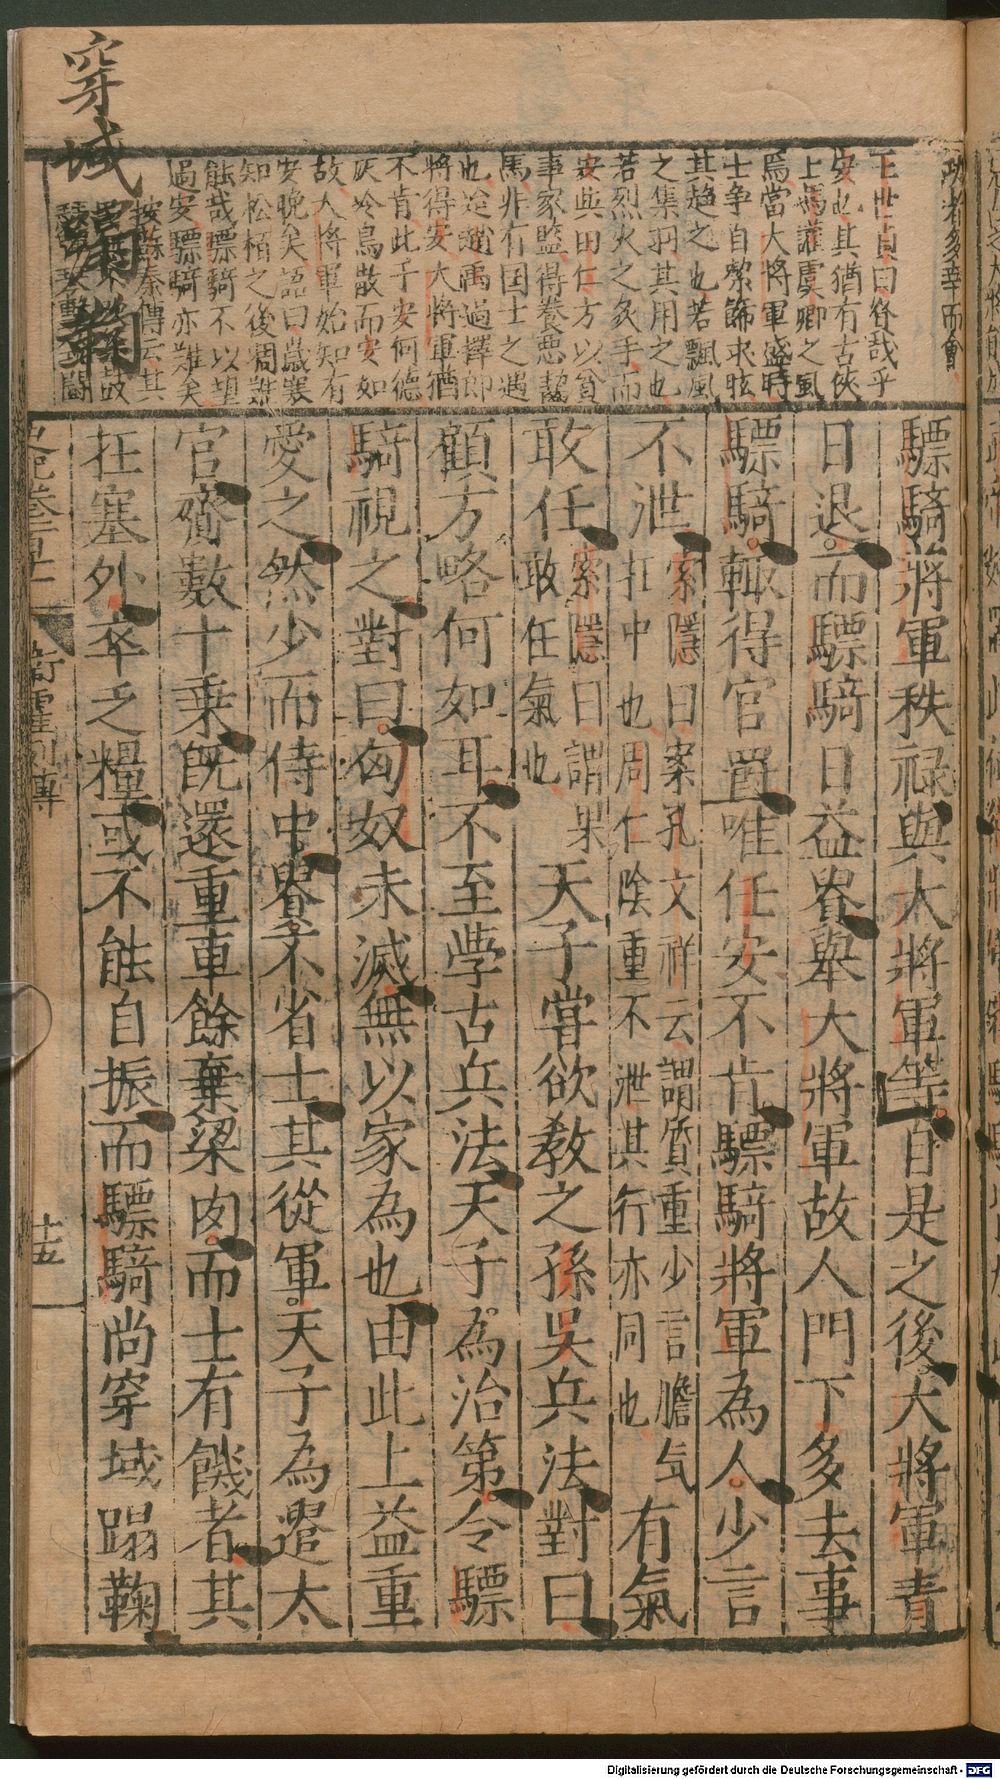 穿域
政者多幸而會
王世貞曰咎哉乎
安也其猶有古俠
上馮讙虞卿之風
焉當大將軍盛時
士爭自潔飾求眩
其趨之也若飄風
之集羽其用之也
若烈火之炙手而
安與田仁方以貧
事家監得養惡齧
馬非有国士之遇
也迨趙禹過擇郎
將得安大將軍猶
不肯此于安何德
灰冷鳥散而安如
故大將軍始知有
安晚矣語曰歲寒
知松栢之後凋難
能哉驃騎不以望
過安驃騎亦難矣
按蘇秦傳云其
驃騎將軍秩禄與大將軍等自是之後大將軍青
日退而驃騎日益貴舉大將軍故人門下多去事
驃騎輒得官爵唯任安不肯驃騎將軍為人少言
不泄
索隱曰案孔文祥云謂質重少言膽気
在中也周仁陰重不泄其行亦同也
有氣
敢任
索隱曰謂果
敢任氣也
天子嘗欲教之孫吳兵法對曰
顧方略何如耳不至學古兵法天子為治第令驃
騎視之對曰匈奴未滅無以家為也由此上益重
愛之然少而侍中貴不省士其從軍天子為遣太
官齎數十乗既還重車餘棄粱肉而士有饑者其
在塞外卒乏糧或不能自振而驃騎尚穿域蹋鞠
史記卷一百十一
衛霍列傳
十五
Digitalisierung gefördert durch die Deutsche Forschungsgemeinschaft - DFG